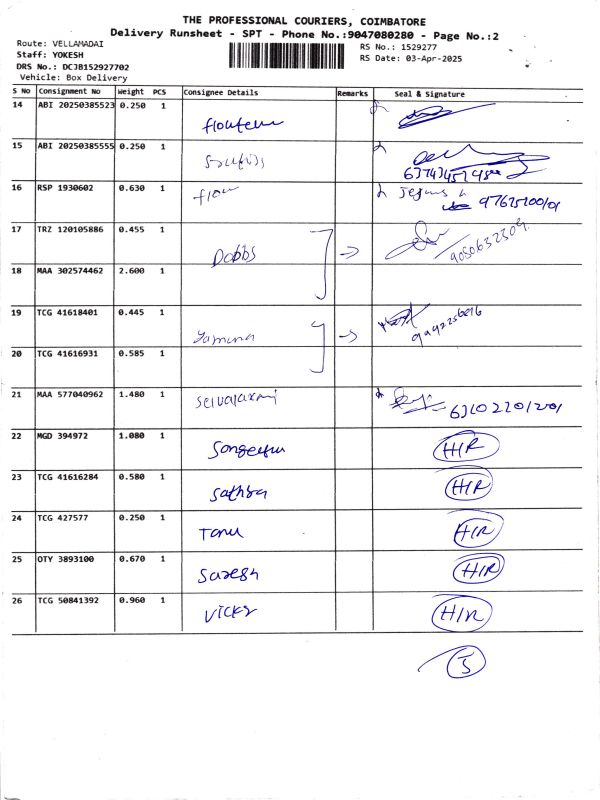 THE PROFESSIONAL COURIERS, COIMBATORE
Delivery Runsheet - SPT - Phone No.:9047080280 - Page No.:2
Route: VELLAMADAI
Staff: YOKESH
DRS No.: DCJB152927702
Vehicle: Box Delivery
RS No.: 1529277
RS Date: 03-Apr-2025
S No Consignment No Weight PCS Consignee Details Remarks Seal & Signature
14 ABI 20250385523 0.250 1
15 ABI 20250385555 0.250 1
16 RSP 1930602 0.630 1
17 TRZ 120105886 0.455 1 9080632309
Dobbs
18 MAA 302574462 2.600 1
19 TCG 41618401 0.445 1
Yamuna
20 TCG 41616931 0.585 1
21 MAA 577040962 1.480 1 Selvalaxmi
22 MGD 394972 1.080 1 H/R
23 TCG 41616284 0.580 1 H/R
24 TCG 427577 0.250 1 Tanu H/R
25 OTY 3893100 0.670 1 Suresh H/R
26 TCG 50841392 0.960 1 Vicky H/R
5